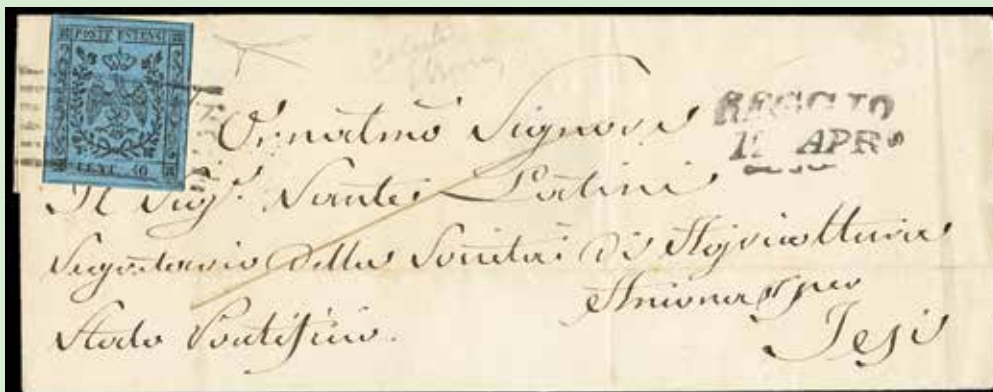 POSTE ESTENSI
CENT. 40
REGGIO
APR
Ornatmo Signore
Il Sigr. Sante Latini
Segretario della Società di Agricoltura
Ancona per
Stato Pontificio.
Jesi